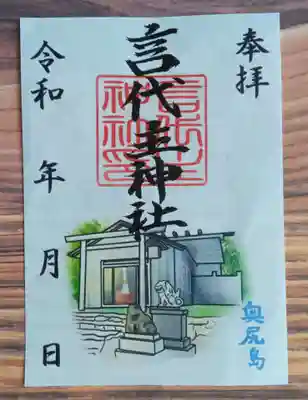 奉拝
言代主神社
令和 年 月 日
奥尻島